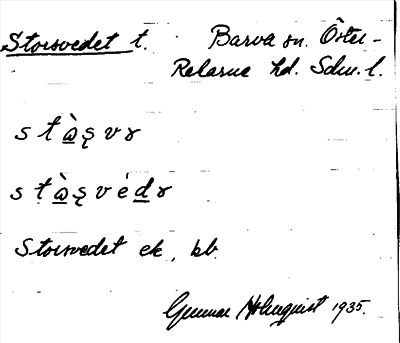 Storsvedet t. Barva sn. Öster-
Rekarne hd. Sdm. l.
stà̱ʂvr
stà̱ʂvèḏr
Storsvedet ek, kb
Gunnar Holmquist 1935.